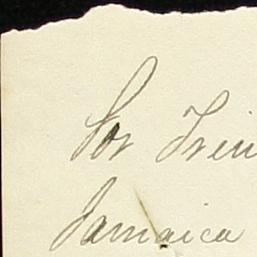 for Trin
Jamaica